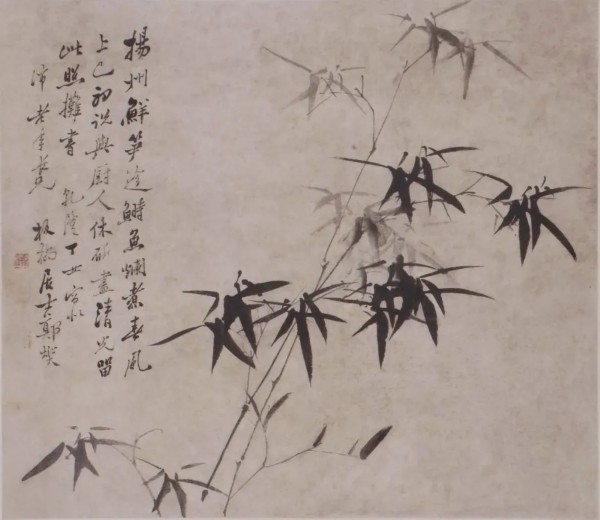 揚州鮮笋趁鰣魚爛煮春風
上巳初說與廚人休斫盡清光留
此照攤書 乾隆丁丑寫於
沛老年長兄 板橋居士鄭燮